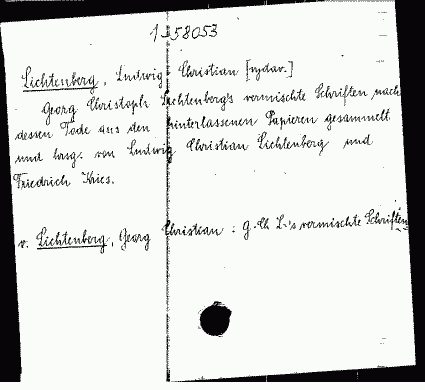 1-358053
Lichtenberg, Ludwig Christian [vydav.]
Georg Christoph Lichtenberg's vermischte Schriften nach
dessen Tode aus den hinterlassenen Papieren gesammelt
und hrsg. von Ludwig Christian Lichtenberg und
Friedrich Kries.
v. Lichtenberg, Georg Christian : G. Ch. L.'s vermischte Schriften